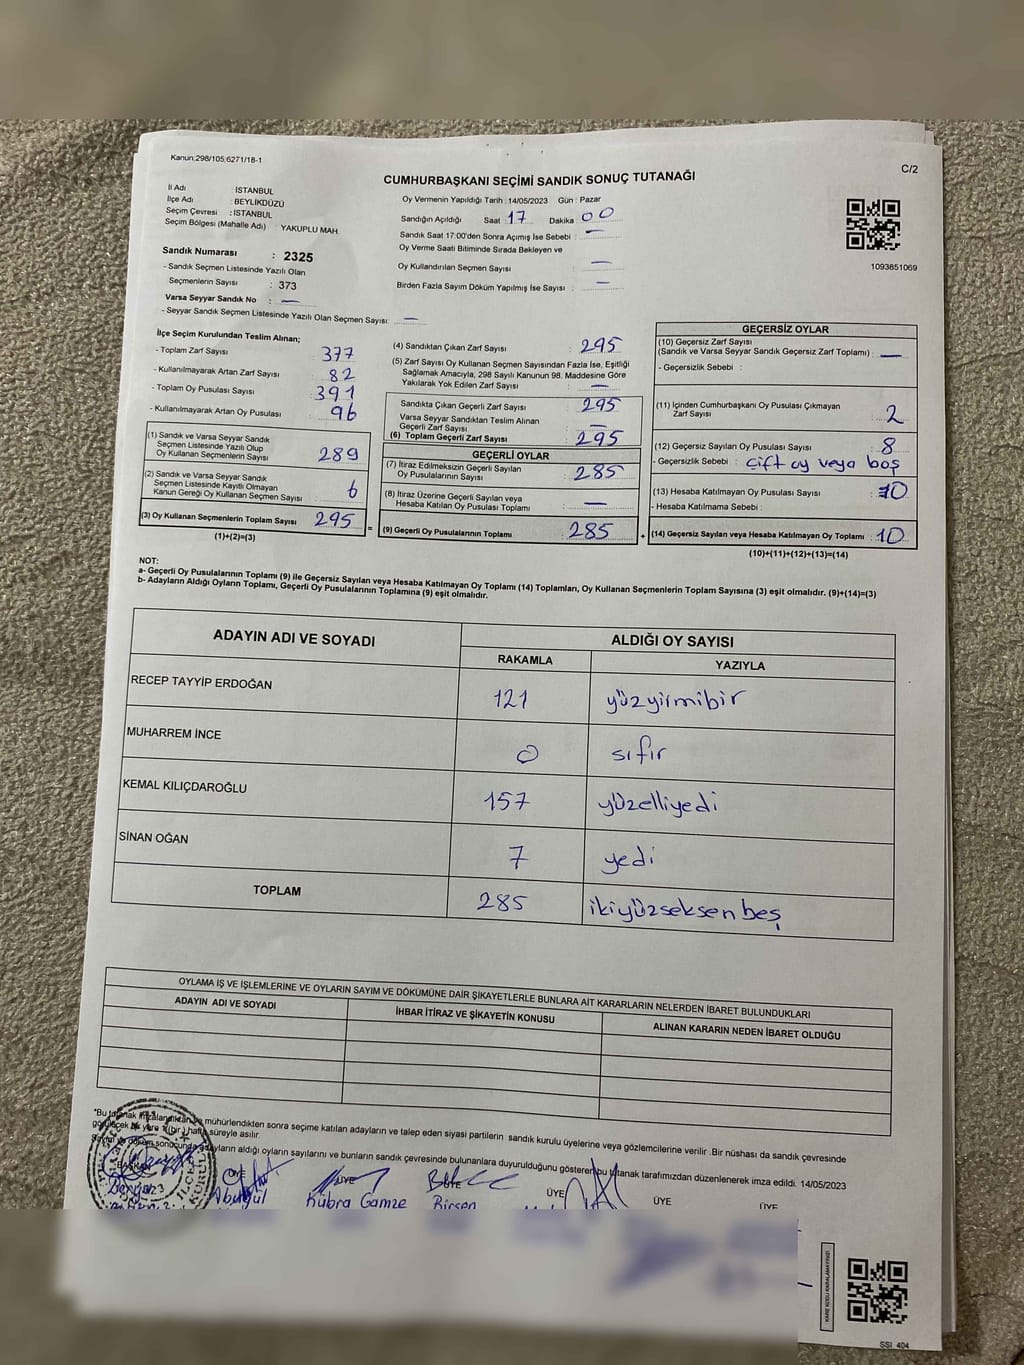 Kanun:298/105,6271/18-1
C/2
CUMHURBAŞKANI SEÇİMİ SANDIK SONUÇ TUTANAĞI
İl Adı : İSTANBUL
İlçe Adı : BEYLİKDÜZÜ
Seçim Çevresi : İSTANBUL
Seçim Bölgesi (Mahalle Adı) : YAKUPLU MAH.
Oy Vermenin Yapıldığı Tarih : 14/05/2023 Gün : Pazar
Sandığın Açıldığı Saat 17 Dakika 00
Sandık Saat 17:00'den Sonra Açımış İse Sebebi : —
Oy Verme Saati Bitiminde Sırada Bekleyen ve
Oy Kullandırılan Seçmen Sayısı : —
Birden Fazla Sayım Döküm Yapılmış İse Sayısı : —
1093851069
Sandık Numarası : 2325
- Sandık Seçmen Listesinde Yazılı Olan
Seçmenlerin Sayısı : 373
Varsa Seyyar Sandık No : —
- Seyyar Sandık Seçmen Listesinde Yazılı Olan Seçmen Sayısı: —
İlçe Seçim Kurulundan Teslim Alınan;
- Toplam Zarf Sayısı : 377
- Kullanılmayarak Artan Zarf Sayısı : 82
- Toplam Oy Pusulası Sayısı : 391
- Kullanılmayarak Artan Oy Pusulası : 96
(1) Sandık ve Varsa Seyyar Sandık
Seçmen Listesinde Yazılı Olup
Oy Kullanan Seçmenlerin Sayısı : 289
(2) Sandık ve Varsa Seyyar Sandık
Seçmen Listesinde Kayıtlı Olmayan
Kanun Gereği Oy Kullanan Seçmen Sayısı : 6
(3) Oy Kullanan Seçmenlerin Toplam Sayısı : 295
(1)+(2)=(3)
(4) Sandıktan Çıkan Zarf Sayısı : 295
(5) Zarf Sayısı Oy Kullanan Seçmen Sayısından Fazla İse, Eşitliği
Sağlamak Amacıyla, 298 Sayılı Kanunun 98. Maddesine Göre
Yakılarak Yok Edilen Zarf Sayısı : —
Sandıkta Çıkan Geçerli Zarf Sayısı : 295
Varsa Seyyar Sandıktan Teslim Alınan
Geçerli Zarf Sayısı : —
(6) Toplam Geçerli Zarf Sayısı : 295
GEÇERLİ OYLAR
(7) İtiraz Edilmeksizin Geçerli Sayılan
Oy Pusulalarının Sayısı : 285
(8) İtiraz Üzerine Geçerli Sayılan veya
Hesaba Katılan Oy Pusulaları Toplamı : —
= (9) Geçerli Oy Pusulalarının Toplamı : 285
GEÇERSİZ OYLAR
(10) Geçersiz Zarf Sayısı
(Sandık ve Varsa Seyyar Sandık Geçersiz Zarf Toplamı) : —
- Geçersizlik Sebebi :
(11) İçinden Cumhurbaşkanı Oy Pusulası Çıkmayan
Zarf Sayısı : 2
(12) Geçersiz Sayılan Oy Pusulası Sayısı : 8
- Geçersizlik Sebebi : çift oy veya boş
(13) Hesaba Katılmayan Oy Pusulası Sayısı : 10
- Hesaba Katılmama Sebebi :
+ (14) Geçersiz Sayılan veya Hesaba Katılmayan Oy Toplamı : 10
(10)+(11)+(12)+(13)=(14)
NOT:
a- Geçerli Oy Pusulalarının Toplamı (9) ile Geçersiz Sayılan veya Hesaba Katılmayan Oy Toplamı (14) Toplamları, Oy Kullanan Seçmenlerin Toplam Sayısına (3) eşit olmalıdır. (9)+(14)=(3)
b- Adayların Aldığı Oyların Toplamı, Geçerli Oy Pusulalarının Toplamına (9) eşit olmalıdır.
ADAYIN ADI VE SOYADI ALDIĞI OY SAYISI
RAKAMLA YAZIYLA
RECEP TAYYİP ERDOĞAN 121 yüzyirmibir
MUHARREM İNCE 0 sıfır
KEMAL KILIÇDAROĞLU 157 yüzelliyedi
SİNAN OĞAN 7 yedi
TOPLAM 285 ikiyüzseksen beş
OYLAMA İŞ VE İŞLEMLERİNE VE OYLARIN SAYIM VE DÖKÜMÜNE DAİR ŞİKAYETLERLE BUNLARA AİT KARARLARIN NELERDEN İBARET BULUNDUKLARI
ADAYIN ADI VE SOYADI İHBAR İTİRAZ VE ŞİKAYETİN KONUSU ALINAN KARARIN NEDEN İBARET OLDUĞU
"Bu tutanak imzalandıktan ve mühürlendikten sonra seçime katılan adayların ve talep eden siyasi partilerin sandık kurulu üyelerine veya gözlemcilerine verilir .Bir nüshası da sandık çevresinde
görülecek bir yere 1(bir) hafta süreyle asılır.
Sayım ve döküm sonucunda adayların aldığı oyların sayılarını ve bunların sandık çevresinde bulunanlara duyurulduğunu gösteren bu tutanak tarafımızdan düzenlenerek imza edildi. 14/05/2023
BAŞKAN ÜYE ÜYE ÜYE ÜYE ÜYE ÜYE
Kübra Gamze Birsen
KARE KODU KARALAMAYINIZ!
SSI 404